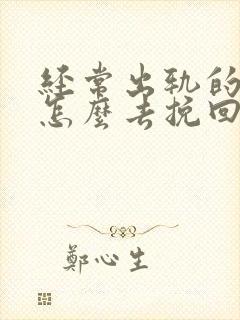 经常出轨的
怎麼去挽回
鄭心生